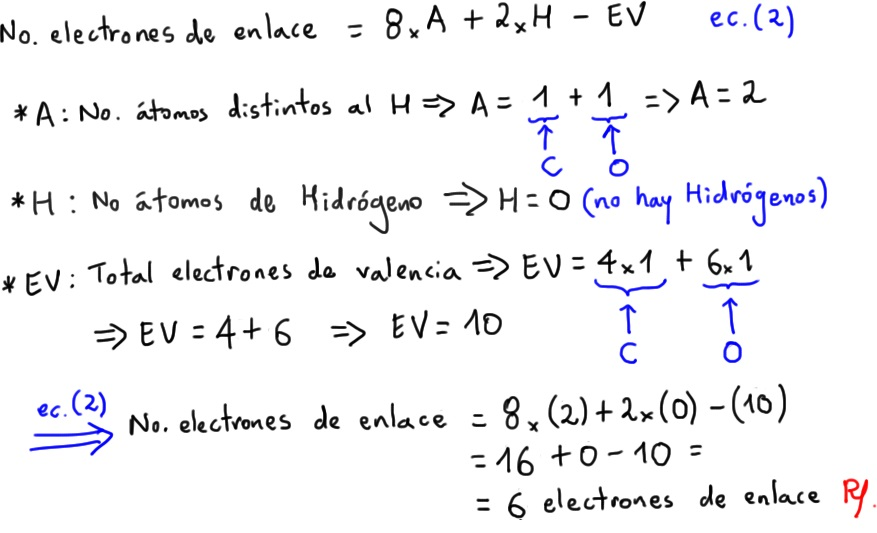 No. electrones de enlace = 8 x A + 2 x H - EV ec.(2)
* A : No. átomos distintos al H => A = 1 + 1 => A = 2
↑ ↑
C O
* H : No átomos de Hidrógeno => H = 0 (no hay Hidrógenos)
* EV : Total electrones de valencia => EV = 4 x 1 + 6 x 1
=> EV = 4 + 6 => EV = 10 ↑ ↑
C O
ec.(2)
=> No. electrones de enlace = 8 x (2) + 2 x (0) - (10)
= 16 + 0 - 10 =
= 6 electrones de enlace R/.